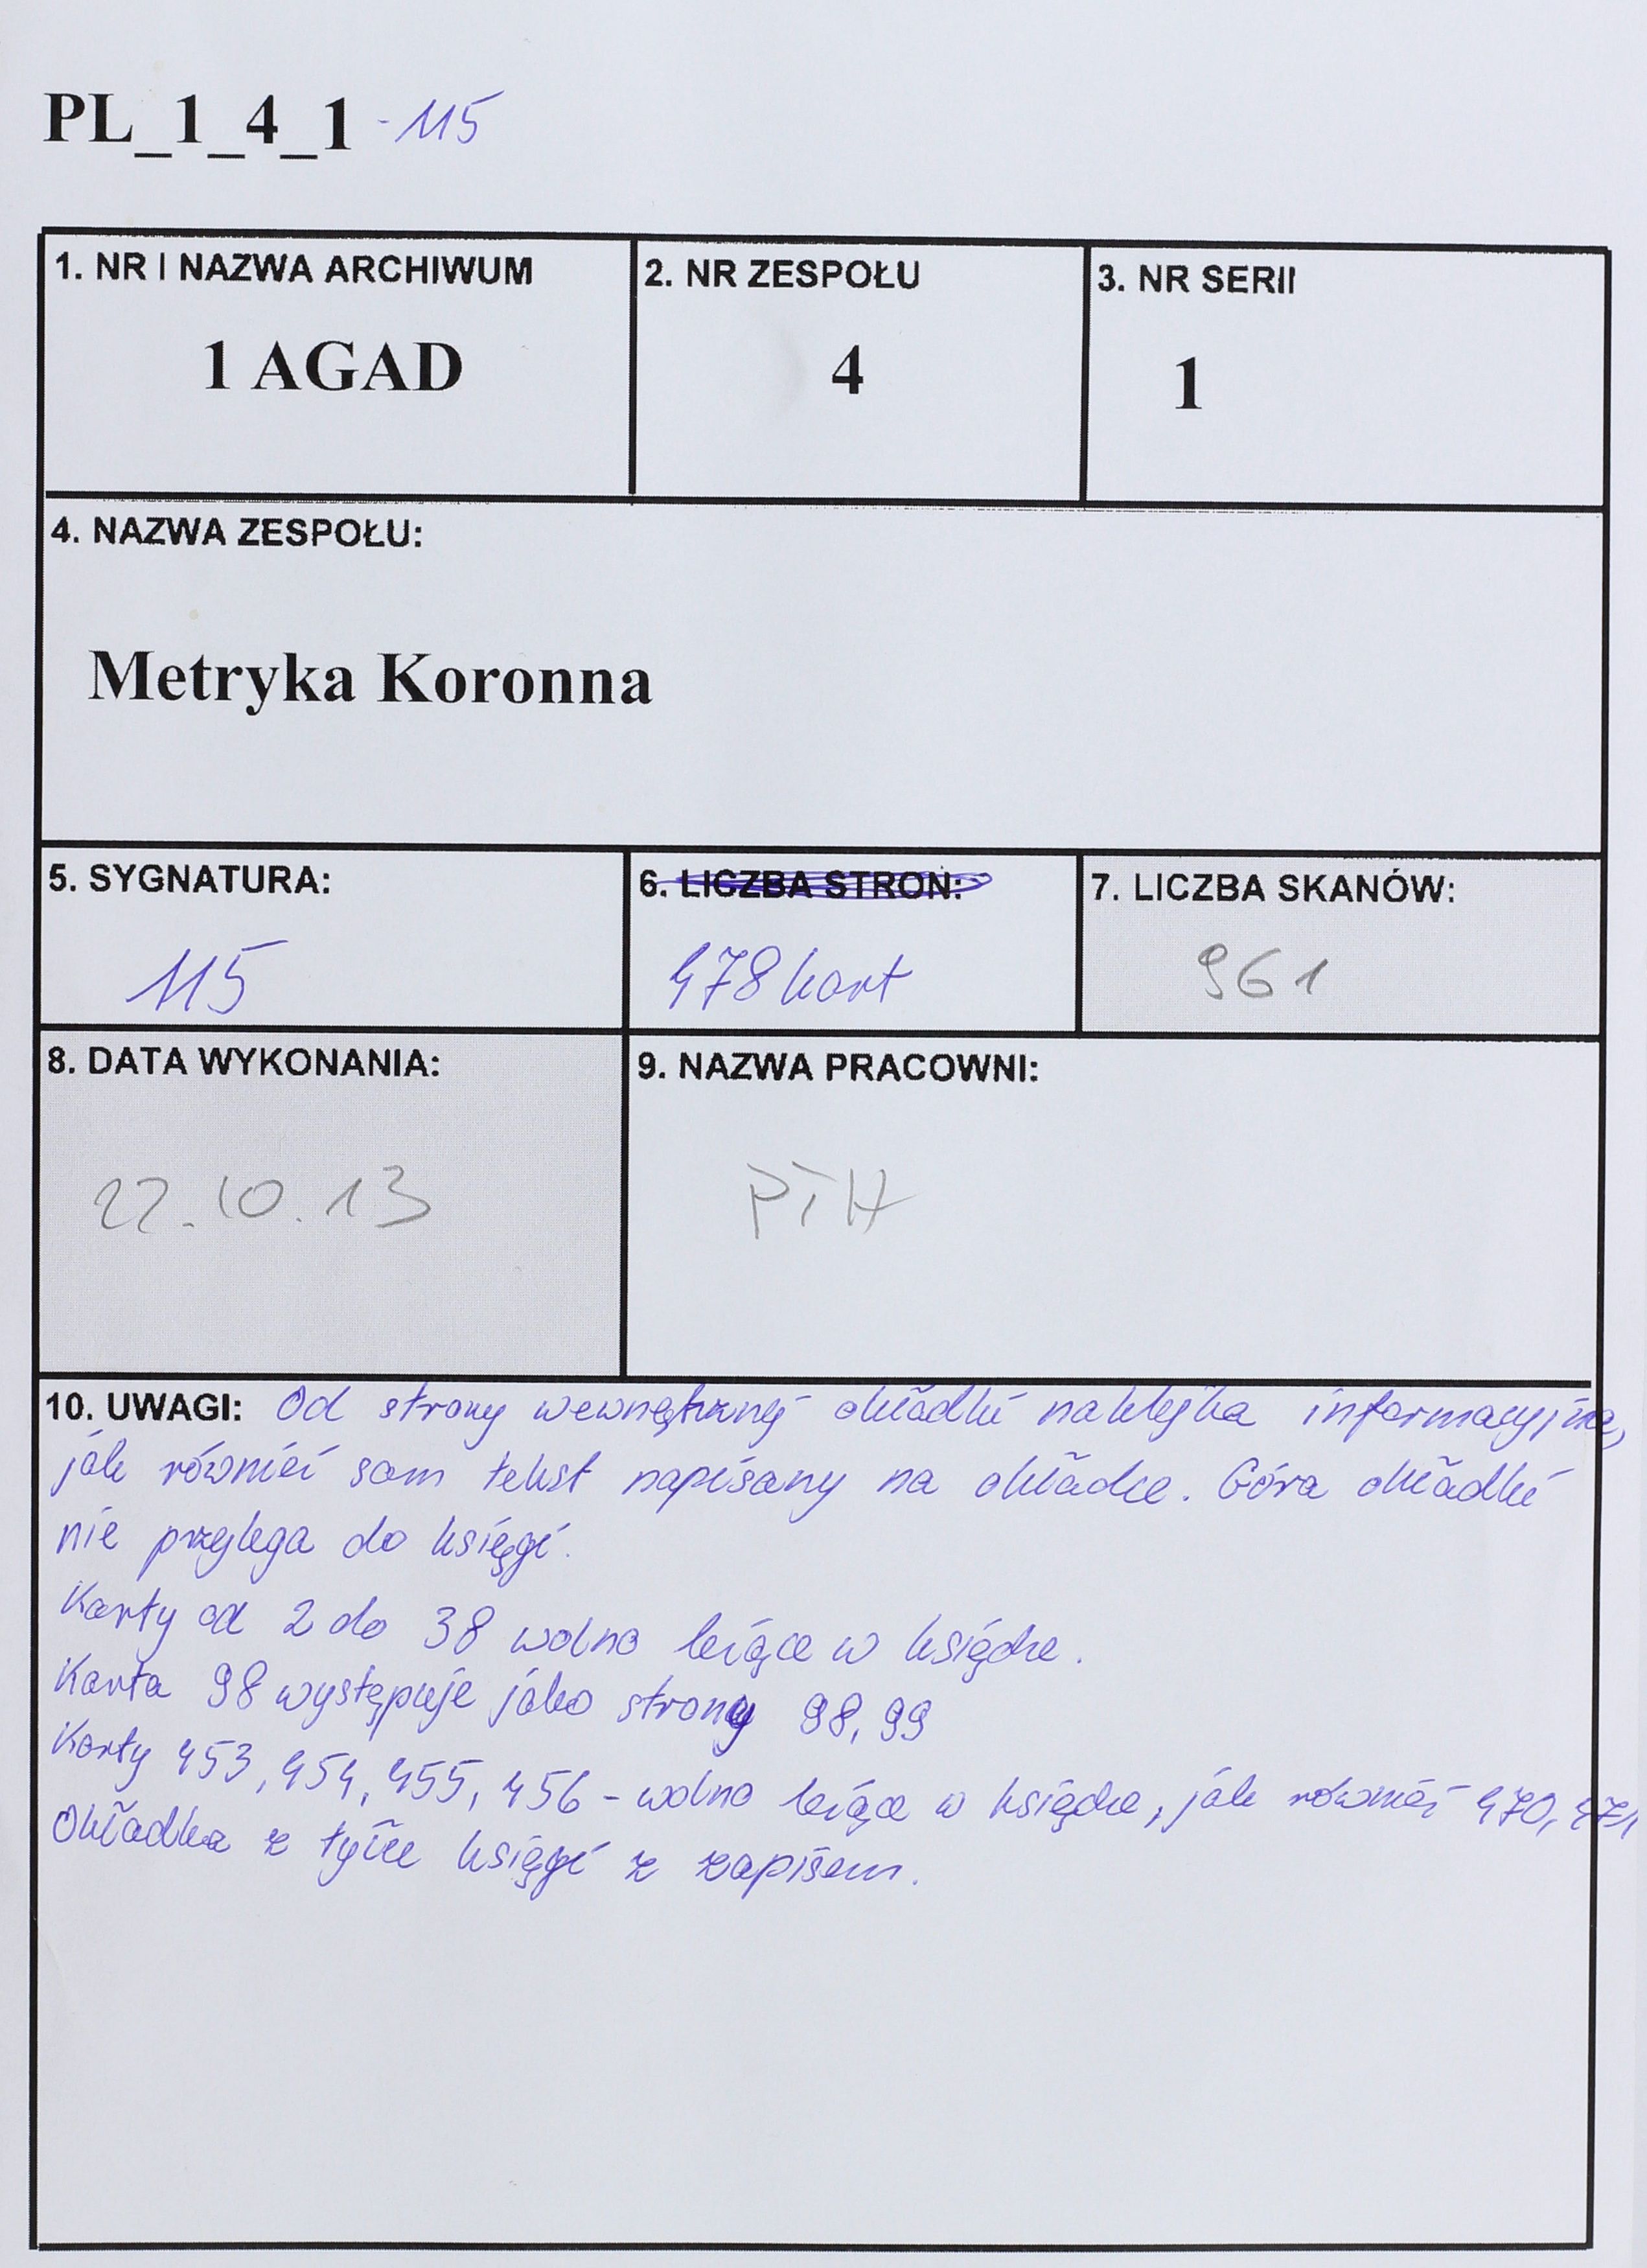 PL_1_4_1 - 115
1. NR I NAZWA ARCHIWUM
1 AGAD
2. NR ZESPOŁU
4
3. NR SERII
1
4. NAZWA ZESPOŁU:
Metryka Koronna
5. SYGNATURA:
115
6. LICZBA STRON:
478 kart
7. LICZBA SKANÓW:
961
8. DATA WYKONANIA:
22.10.13
9. NAZWA PRACOWNI:
10. UWAGI: Od strony wewnętrznej okładki naklejka informacyjna,
jak również sam tekst napisany na okładce. Góra okładki
nie przylega do księgi.
Karty od 2 do 38 wolno leżące w księdze.
Karta 98 występuje jako strony 98, 99
Karty 453, 454, 455, 456 - wolno leżące w księdze, jak również 470, 471
Okładka z tyłu księgi z zapisem.